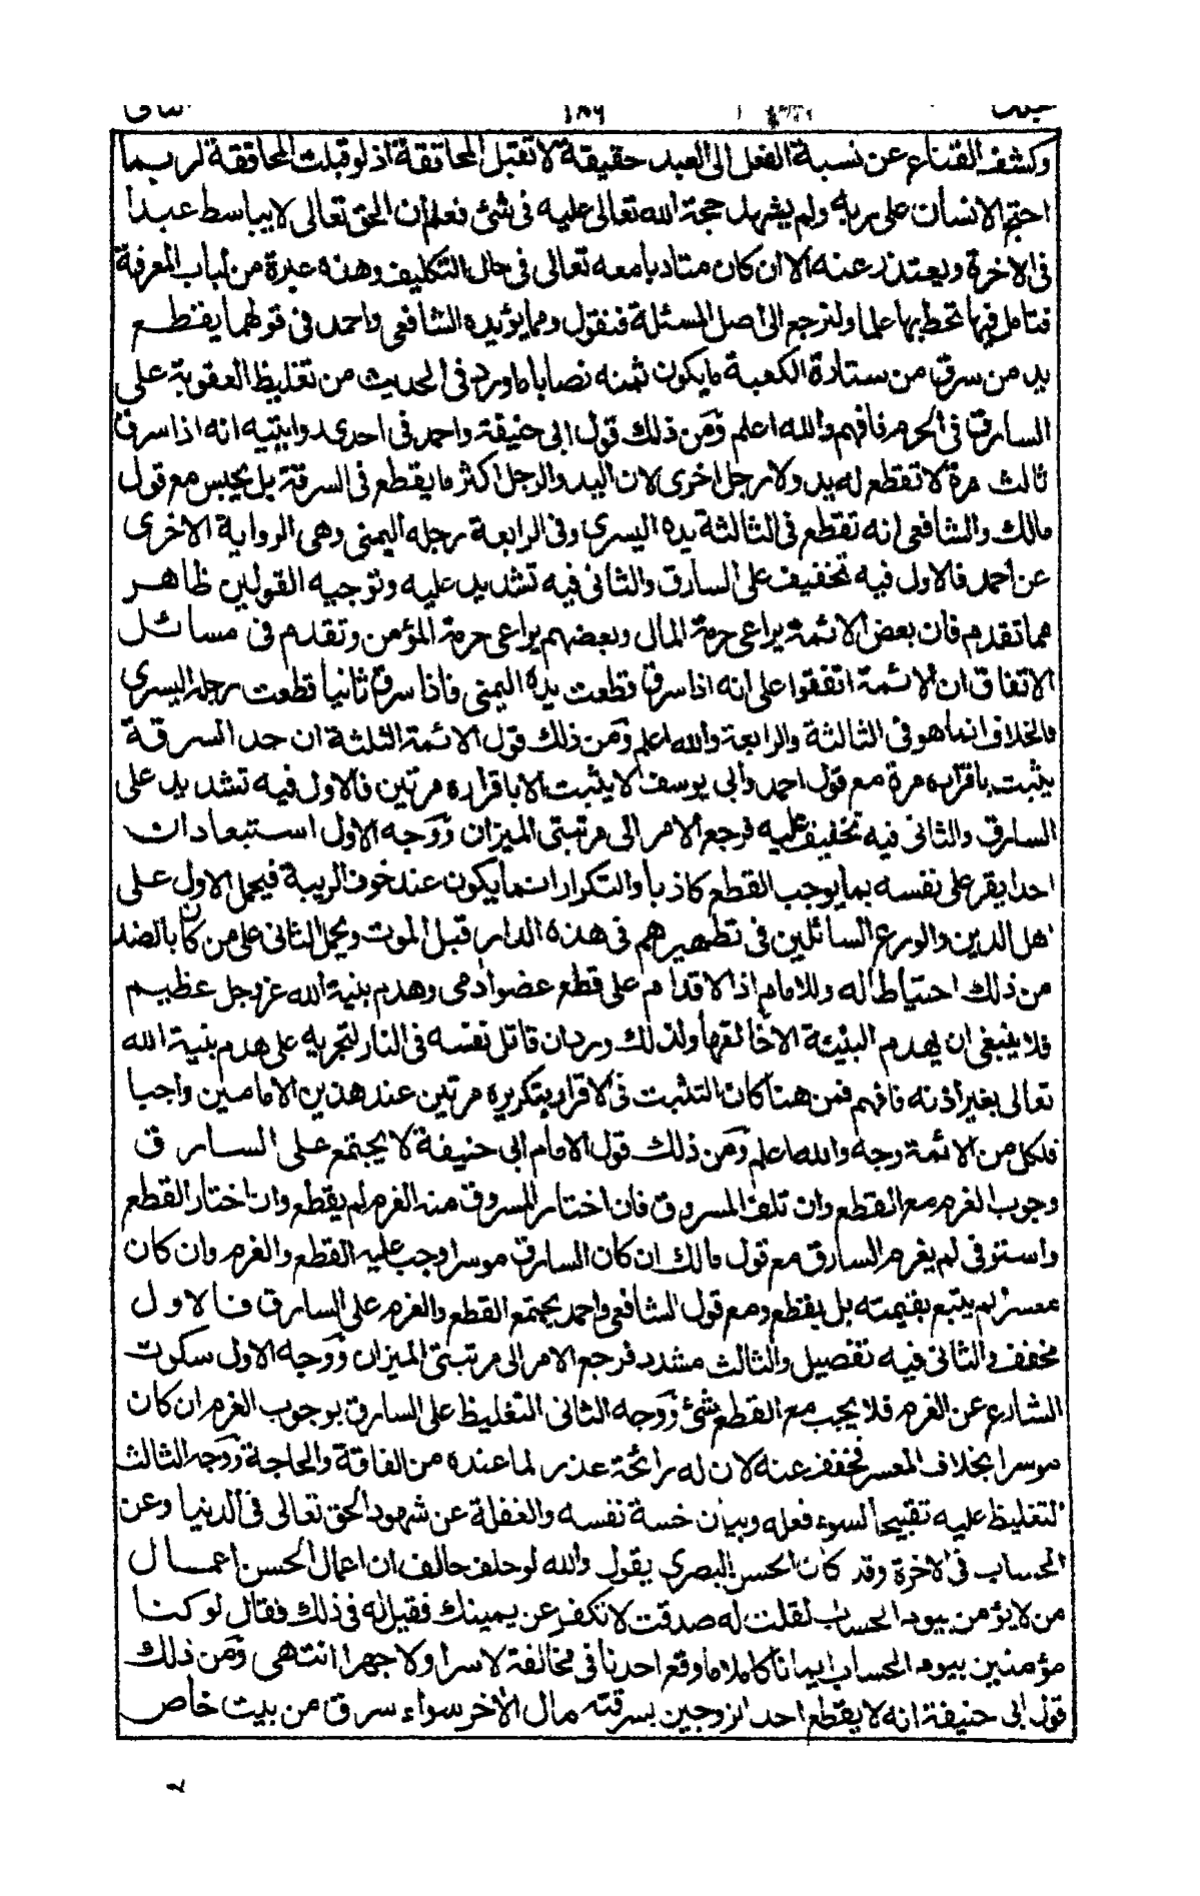 ١٨٦
وكشف القناع عن نسبة الفعل الى العبد حقيقة لا تقبل المحاققة اذ لو قبلت المحاققة لربما
احتج الانسان على ربه ولم يشهد حجة الله تعالى عليه فى شئ فعلم ان الحق تعالى لا يباسط عبدا
فى الاخرة ويعتذر عنه الا ان كان متادبا معه تعالى فى حال التكليف وهذه عبرة من لباب المعرفة
فتامل فيها تحط بها علما ولنرجع الى اصل المسئلة فنقول ومما يؤيده الشافعى واحمد فى قولهما يقطع
يد من سرق من ستارة الكعبة ما يكون ثمنه نصابا ما ورد فى الحديث من تغليظ العقوبة على
السارق فى الحرم فافهم والله اعلم ومن ذلك قول ابى حنيفة واحمد فى احدى روايتيه انه اذا سرق
ثالث مرة لا تقطع له يد ولا رجل اخرى لان اليد والرجل اكثر ما يقطع فى السرقة بل يحبس مع قول
مالك والشافعى انه تقطع فى الثالثة يده اليسرى وفى الرابعة رجله اليمنى وهى الرواية الاخرى
عن احمد فالاول فيه تخفيف على السارق والثانى فيه تشديد عليه وتوجيه القولين ظاهر
مما تقدم فان بعض الائمة يراعى حرمة المال وبعضهم يراعى حرمة المؤمن وتقدم فى مسائل
الاتفاق ان الائمة اتفقوا على انه اذا سرق قطعت يده اليمنى فاذا سرق ثانيا قطعت رجله اليسرى
فالخلاف انما هو فى الثالثة والرابعة والله اعلم ومن ذلك قول الائمة الثلثة ان حد السرقة
يثبت باقراره مرة مع قول احمد وابى يوسف لا يثبت الا باقراره مرتين فالاول فيه تشديد على
السارق والثانى فيه تخفيف عليه فرجع الامر الى مرتبتى الميزان ووجه الاول استبعاد ان
احدا يقر على نفسه بما يوجب القطع كاذبا والتكرار انما يكون عند خوف الريبة فيحمل الاول على
اهل الدين والورع السائلين فى تطهيرهم فى هذه الدار قبل الموت ويحمل الثانى على من كان بالضد
من ذلك احتياطا له وللامام اذ الاقدام على قطع عضو ادمى وهدم بنية الله عز وجل عظيم
فلا ينبغى ان يهدم البنية الا خالقها ولذلك ورد ان قاتل نفسه فى النار لتجريه على هدم بنية الله
تعالى بغير اذنه فافهم فمن هنا كان التثبت فى الاقرار بتكريره مرتين عند هذين الامامين واجبا
فلكل من الائمة وجه والله اعلم ومن ذلك قول الامام ابى حنيفة لا يجتمع على السارق
وجوب الغرم مع القطع وان تلف المسروق فان اختار المسروق منه الغرم لم يقطع وان اختار القطع
واستوفى لم يغرم السارق مع قول مالك ان كان السارق موسرا وجب عليه القطع والغرم وان كان
معسرا لم يتبع بقيمته بل يقطع ومع قول الشافعى واحمد يجتمع القطع والغرم على السارق فالاول
مخفف والثانى فيه تفصيل والثالث مشدد فرجع الامر الى مرتبتى الميزان ووجه الاول سكوت
الشارع عن الغرم فلا يجب مع القطع شئ ووجه الثانى التغليظ على السارق بوجوب الغرم ان كان
موسرا بخلاف المعسر فخفف عنه لان له رائحة عذر لما عنده من الفاقة والحاجة ووجه الثالث
التغليظ عليه تقبيحا لسوء فعله وبيان خسة نفسه والغفلة عن شهود الحق تعالى فى الدنيا وعن
الحساب فى الاخرة وقد كان الحسن البصرى يقول والله لو حلف حالف ان اعمال الحسن اعمال
من لا يؤمن بيوم الحساب لقلت له صدقت لا تكفر عن يمينك فقيل له فى ذلك فقال لو كنا
مؤمنين بيوم الحساب ايمانا كاملا ما وقع احدنا فى مخالفة لا سرا ولا جهرا انتهى ومن ذلك
قول ابى حنيفة انه لا يقطع احد الزوجين بسرقته مال الاخر سواء سرق من بيت خاص